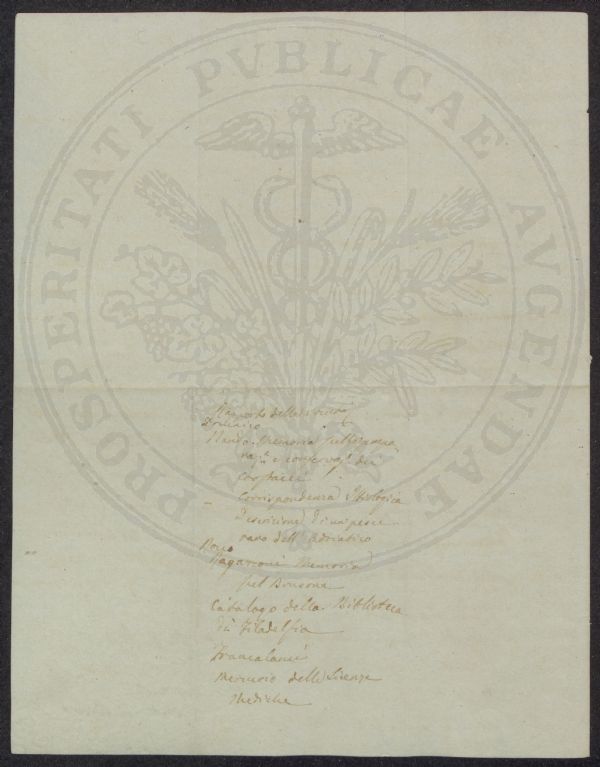 PROSPERITATI PVBLICAE AVGENDAE
Rapporto della
Domenico
Nardo Memoria sulla
e conservaz.e dei
Crostacei
Corrispondenza Itiologica
Descrizione di un pesce
raro dell'adriatico
Memoria
sul Bruson
Catalogo della Biblioteca
di Filadelfia
Francalanci
Mercurio delle Scienze
Mediche